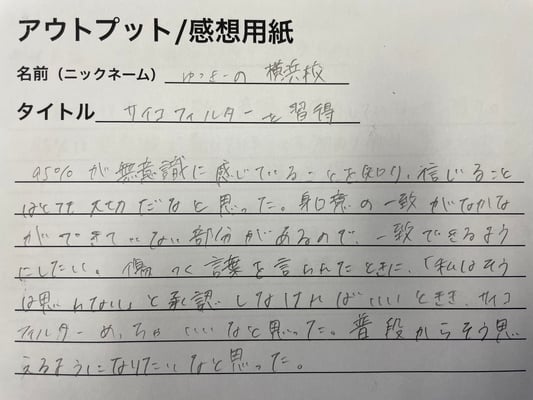 アウトプット/感想用紙
名前（ニックネーム） ゆっきーの 横浜校
タイトル サイコフィルターを習得
95%が無意識に感じていることを知り、信じること
はとても大切だなと思った。身口意の一致がなかな
ができていない部分があるので、一致できるよう
にしたい。傷つく言葉を言られたときに、「私はそう
は思わない」と承認しなければいいとき、サイコ
フィルターめっちゃいいなと思った。普段からそう思
えるようになりたいなと思った。